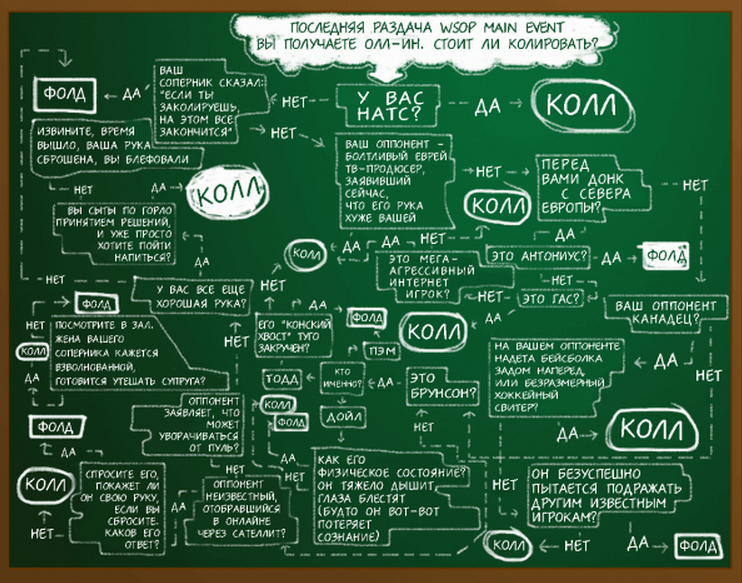 ПОСЛЕДНЯЯ РАЗДАЧА WSOP MAIN EVENT
ВЫ ПОЛУЧАЕТЕ ОЛЛ-ИН. СТОИТ ЛИ КОЛИРОВАТЬ?
У ВАС
НАТС?
ДА
КОЛЛ
НЕТ
ВАШ
СОПЕРНИК СКАЗАЛ:
"ЕСЛИ ТЫ
ЗАКОЛИРУЕШЬ,
НА ЭТОМ ВСЕ
ЗАКОНЧИТСЯ"
ДА
ФОЛД
НЕТ
ИЗВИНИТЕ, ВРЕМЯ
ВЫШЛО, ВАША РУКА
СБРОШЕНА, ВЫ БЛЕФОВАЛИ
НЕТ
ДА
КОЛЛ
ВАШ ОППОНЕНТ -
БОЛТЛИВЫЙ ЕВРЕЙ
ТВ-ПРОДЮСЕР,
ЗАЯВИВШИЙ
СЕЙЧАС,
ЧТО ЕГО РУКА
ХУЖЕ ВАШЕЙ
НЕТ
ПЕРЕД
ВАМИ ДОНК
С СЕВЕРА
ЕВРОПЫ?
НЕТ
КОЛЛ
ДА
ВЫ СЫТЫ ПО ГОРЛО
ПРИНЯТИЕМ РЕШЕНИЙ,
И УЖЕ ПРОСТО
ХОТИТЕ ПОЙТИ
НАПИТЬСЯ?
ДА
КОЛЛ
ДА
ДА
НЕТ
ЭТО МЕГА-
АГРЕССИВНЫЙ
ИНТЕРНЕТ
ИГРОК?
ЭТО АНТОНИУС?
ДА
ФОЛД
НЕТ
НЕТ
У ВАС ВСЕ ЕЩЕ
ХОРОШАЯ РУКА?
НЕТ
НЕТ
ЭТО ГАС?
ДА
КОЛЛ
ВАШ ОППОНЕНТ
КАНАДЕЦ?
ФОЛД
НЕТ
КОЛЛ
ДА
ПОСМОТРИТЕ В ЗАЛ.
ЖЕНА ВАШЕГО
СОПЕРНИКА КАЖЕТСЯ
ВЗВОЛНОВАННОЙ,
ГОТОВИТСЯ УТЕШАТЬ СУПРУГА?
НЕТ
ЕГО "КОНСКИЙ
ХВОСТ" ТУГО
ЗАКРУЧЕН?
ДА
ФОЛД
ПЭМ
ТОДД
КТО
ИМЕННО?
ДА
ЭТО
БРУНСОН?
НА ВАШЕМ ОППОНЕНТЕ
НАДЕТА БЕЙСБОЛКА
ЗАДОМ НАПЕРЕД,
ИЛИ БЕЗРАЗМЕРНЫЙ
ХОККЕЙНЫЙ
СВИТЕР?
ДА
НЕТ
КОЛЛ
ФОЛД
ДОЙЛ
ДА
КОЛЛ
НЕТ
ФОЛД
ДА
ОППОНЕНТ
ЗАЯВЛЯЕТ, ЧТО
МОЖЕТ
УВОРАЧИВАТЬСЯ
ОТ ПУЛЬ?
НЕТ
ДА
НЕТ
КАК ЕГО
ФИЗИЧЕСКОЕ СОСТОЯНИЕ?
ОН ТЯЖЕЛО ДЫШИТ,
ГЛАЗА БЛЕСТЯТ
(БУДТО ОН ВОТ-ВОТ
ПОТЕРЯЕТ
СОЗНАНИЕ)
КОЛЛ
НЕТ
СПРОСИТЕ ЕГО,
ПОКАЖЕТ ЛИ
ОН СВОЮ РУКУ,
ЕСЛИ ВЫ
СБРОСИТЕ.
КАКОВ ЕГО
ОТВЕТ?
ДА
ОППОНЕНТ
НЕИЗВЕСТНЫЙ,
ОТОБРАВШИЙСЯ
В ОНЛАЙНЕ
ЧЕРЕЗ САТЕЛЛИТ?
НЕТ
ОН БЕЗУСПЕШНО
ПЫТАЕТСЯ ПОДРАЖАТЬ
ДРУГИМ ИЗВЕСТНЫМ
ИГРОКАМ?
КОЛЛ
НЕТ
ДА
ФОЛД